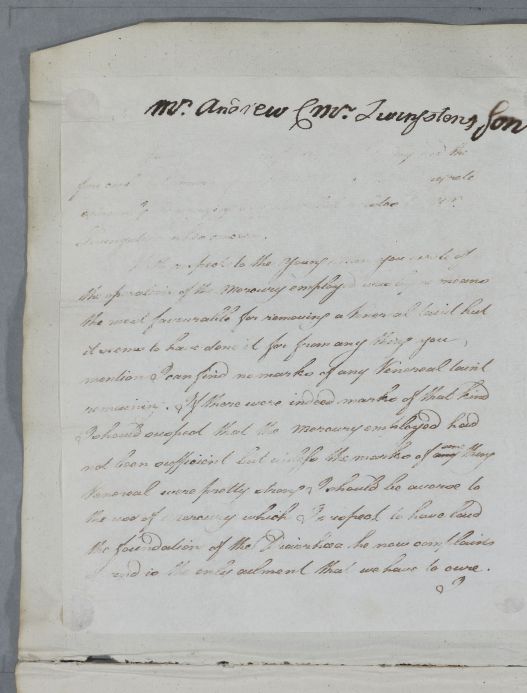 Mr. Andrew & Mr. Livingstons Son
and the
wrote
With respect to the Young man you wrote of
the operation of the Mercury employed was by no means
the most favourable for removing a Venereal taint but
it seems to have done it for from any thing you
mention I can find no marks of any Venereal taint
remaining. If there were indeed marks of that kind
I should suspect that the mercury employed had
not been sufficient but unless the marks of any thing
Venereal were pretty strong I should be averse to
the use of mercury which I suspect to have laid
the foundation of the Diarrhœa he now complains
and is the only ailment that we have to cure.